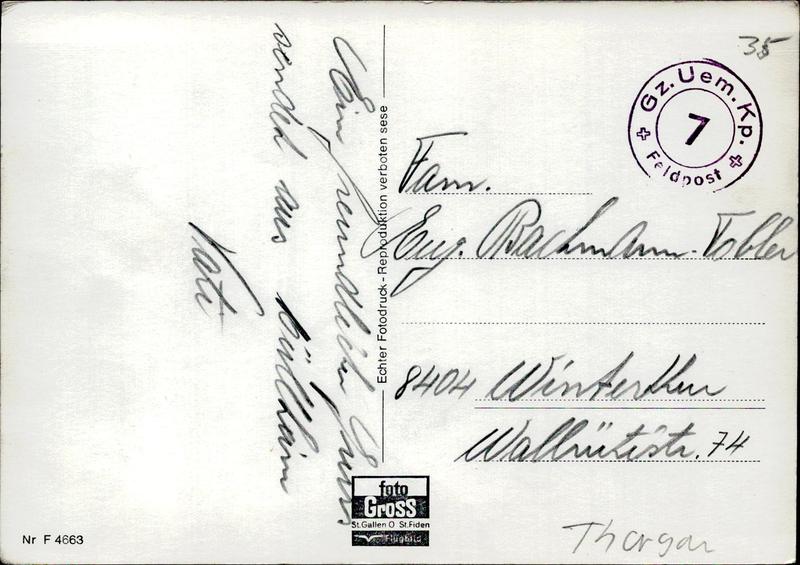 Ein freundlicher Gruss
sendet aus Müllheim
Vati
Echter Fotodruck - Reproduktion verboten sese
35
Gz. Uem. Kp.
7
Feldpost
Fam.
Eug. Bachmann-Tobler
8404 Winterthur
Wallrütistr. 74
foto
Gross
St. Gallen O St. Fiden
Flugbild
Nr F 4663
Thurgau